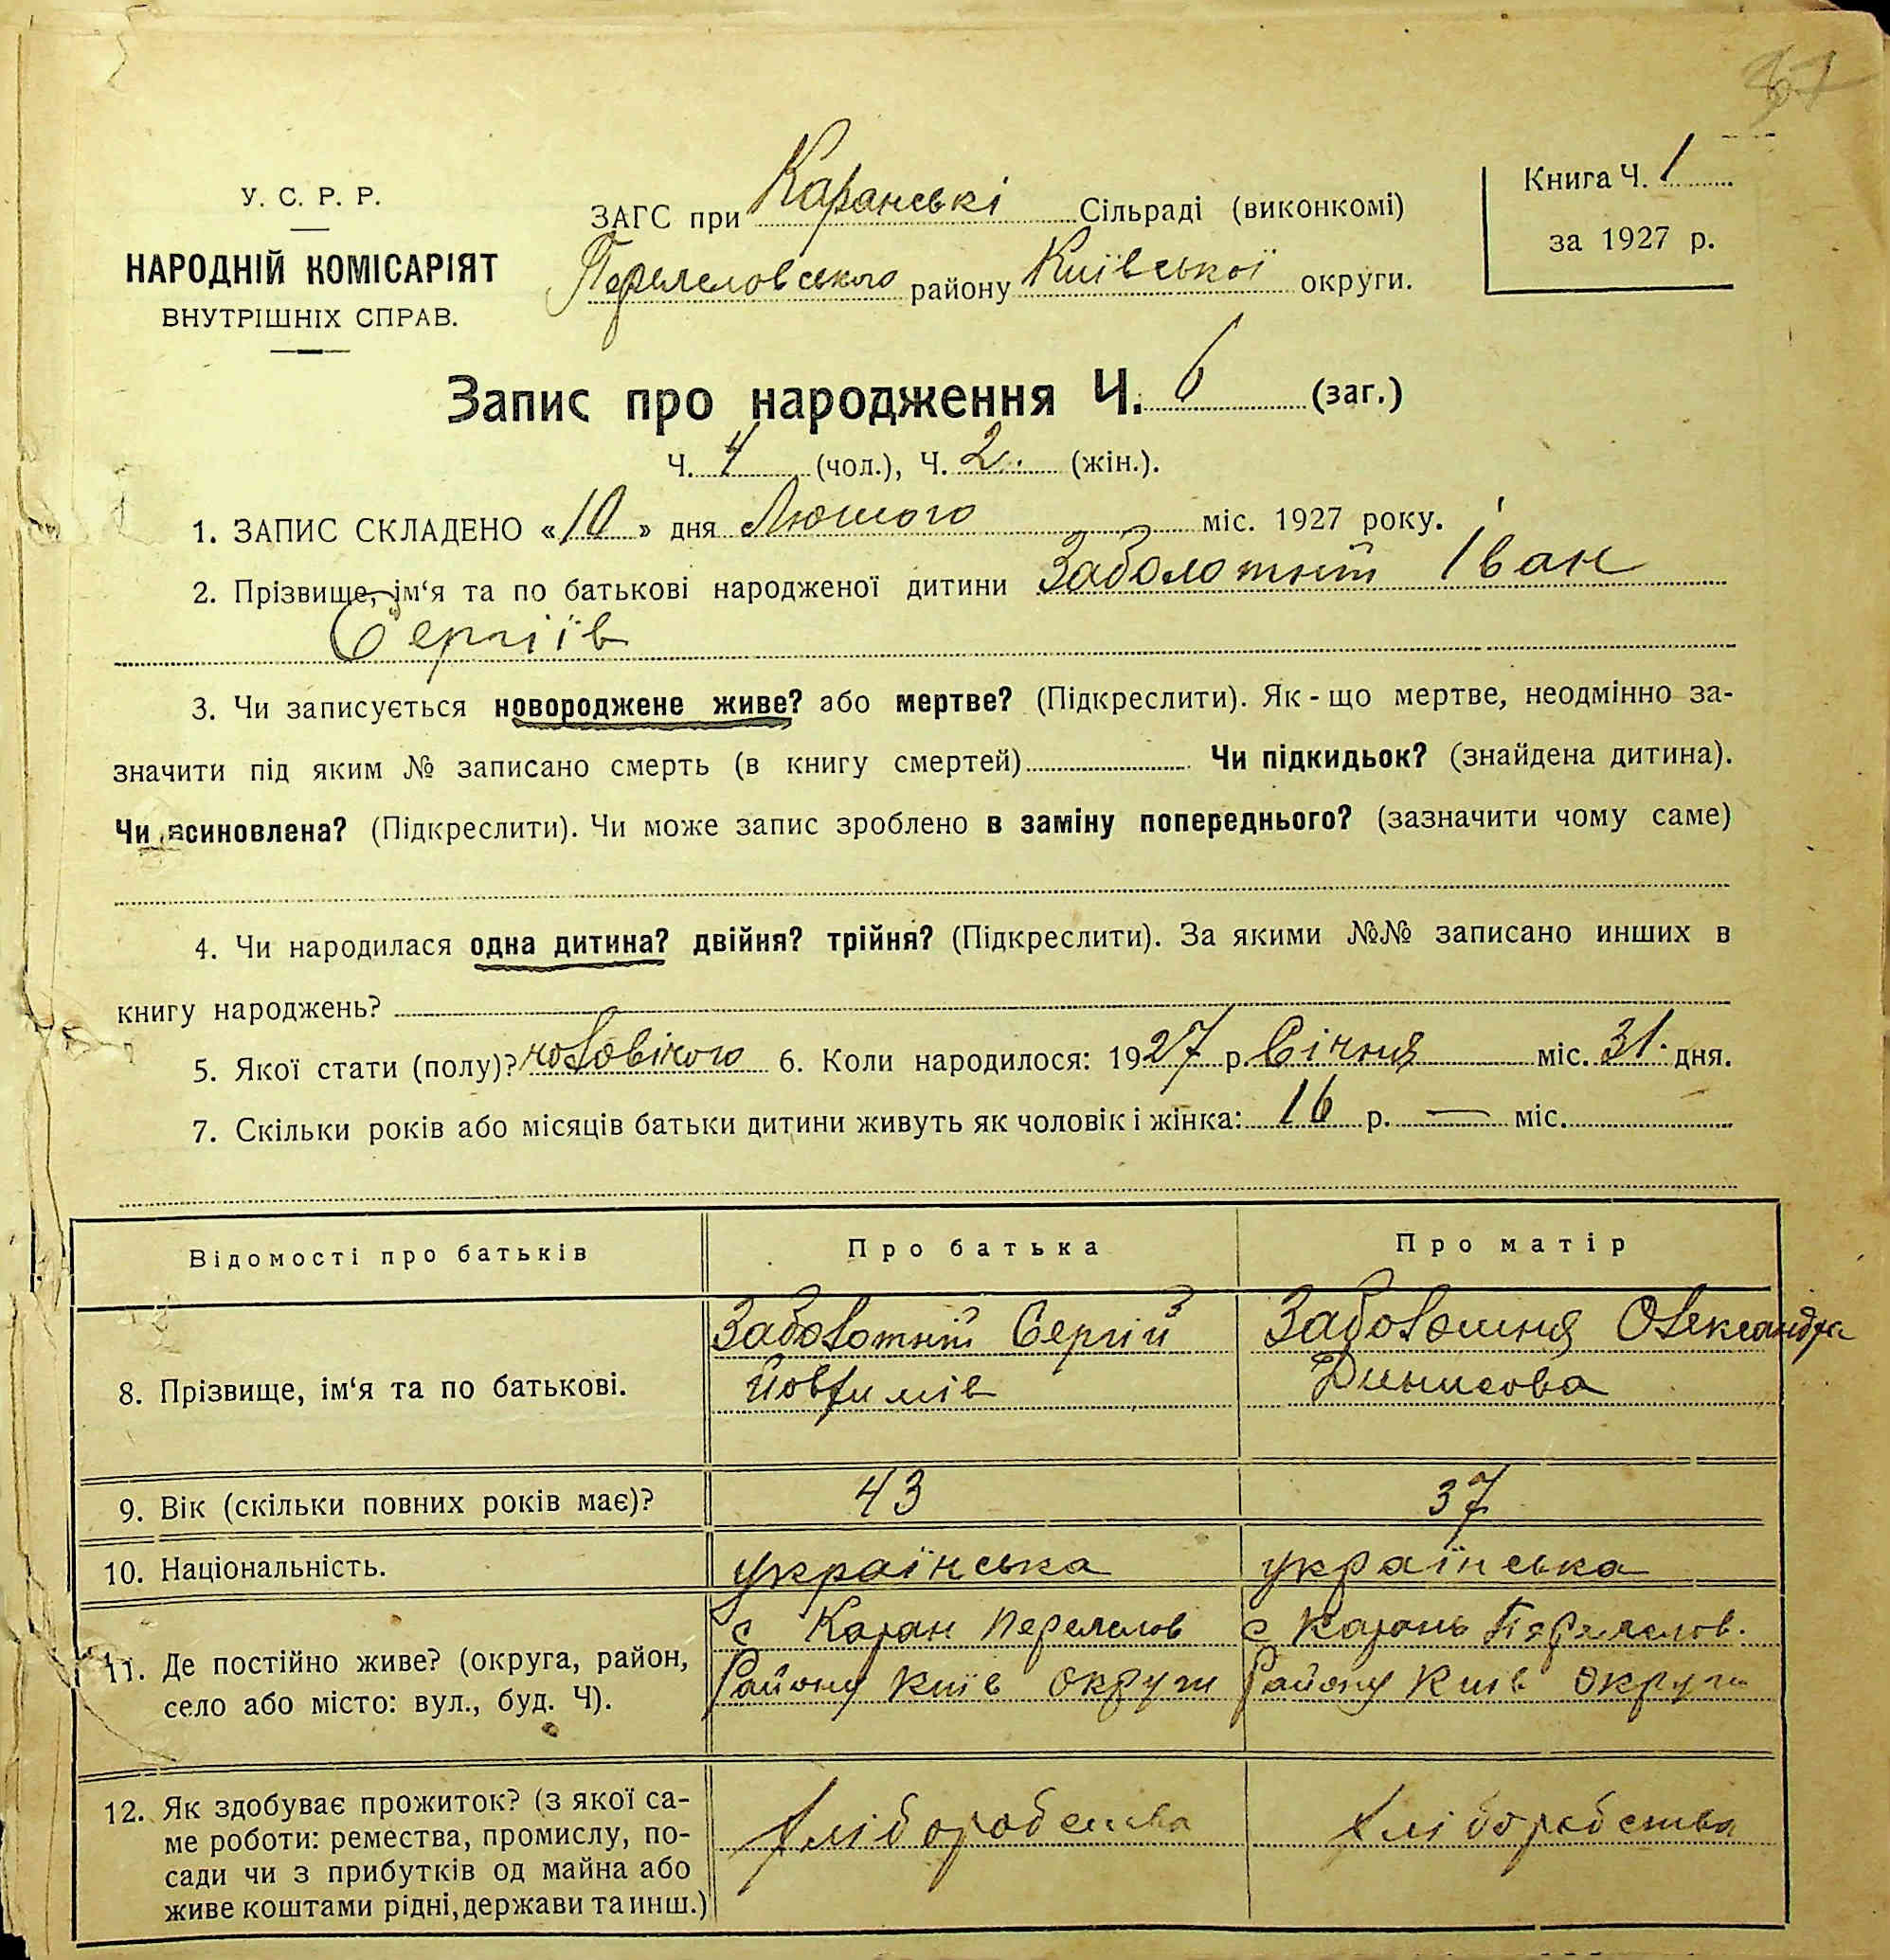 У. С. Р. Р.
НАРОДНІЙ КОМІСАРІЯТ
ВНУТРІШНІХ СПРАВ.
ЗАГС при Каранські Сільраді (виконкомі)
району Київської округи.
Книга Ч. 1
за 1927 р.
Запис про народження Ч. 6 (заг.)
Ч. 4 (чол.), Ч. 2. (жін.).
1. ЗАПИС СКЛАДЕНО «10» дня Лютого міс. 1927 року.
2. Прізвище, ім‘я та по батькові народженої дитини Заболотній Іван
Сергіїв
3. Чи записується новороджене живе? або мертве? (Підкреслити). Як - що мертве, неодмінно за-
значити під яким № записано смерть (в книгу смертей) Чи підкидьок? (знайдена дитина).
Чи всиновлена? (Підкреслити). Чи може запис зроблено в заміну попереднього? (зазначити чому саме)
4. Чи народилася одна дитина? двійня? трійня? (Підкреслити). За якими №№ записано инших в
книгу народжень?
5. Якої стати (полу)? чоловічого 6. Коли народилося: 1927 р. Січня міс. 31. дня.
7. Скільки років або місяців батьки дитини живуть як чоловік і жінка: 16 р. — міс.
Відомості про батьків Про батька Про матір
8. Прізвище, ім‘я та по батькові.
Заболотній Сергій
Йовхимів
Заболотня Олександра
Динисова
9. Вік (скільки повних років має)? 43 37
10. Національність. українська українська
11. Де постійно живе? (округа, район,
село або місто: вул., буд. Ч).
с Каран
Району Київ округи
с Карань
Району Київ округи
12. Як здобуває прожиток? (з якої са-
ме роботи: ремества, промислу, по-
сади чи з прибутків од майна або
живе коштами рідні, держави та инш.)
хліборобства
хліборобства